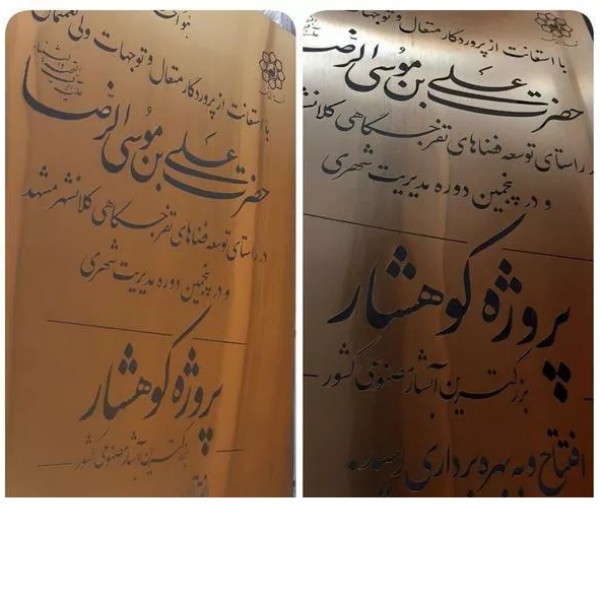 با استعانت از پروردگار متعال و توجهات ولی نعمتمان
حضرت علی بن موسی الرضا
در راستای توسعه فضاهای تفرجگاهی کلانشهر مشهد
و در پنجمین دوره مدیریت شهری
پروژه کوهشار
بزرگترین آبشار مصنوعی کشور
با استعانت از پروردگار متعال و توجهات ولی نعمتمان
حضرت علی بن موسی الرضا
در راستای توسعه فضاهای تفرجگاهی کلانشه
و در پنجمین دوره مدیریت شهری
پروژه کوهشار
بزرگترین آبشار مصنوعی کشور
افتتاح و به بهره برداری رسید.